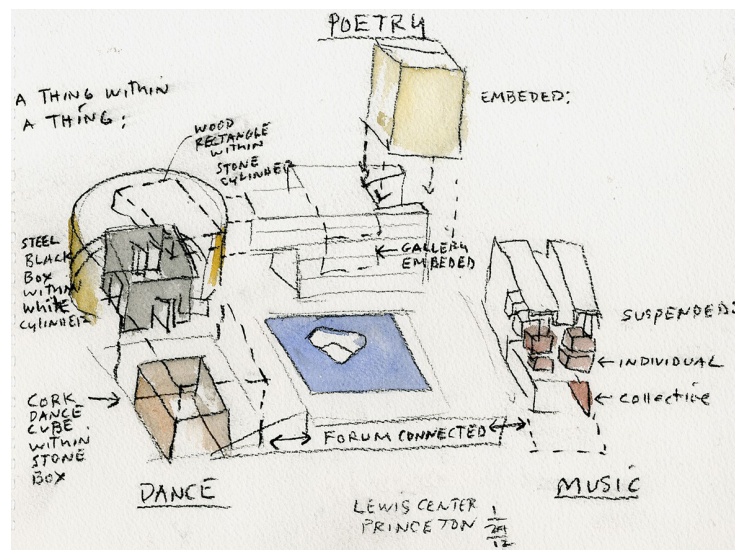 POETRY
A THING WITHIN
A THING:
EMBEDED:
WOOD
RECTANGLE
WITHIN
STONE
CYLINDER
STEEL
BLACK
BOX
WITHIN
WHITE
CYLINDER
GALLERY
EMBEDED
SUSPENDED:
INDIVIDUAL
COLLECTIVE
CORK
DANCE
CUBE
WITHIN
STONE
BOX
FORUM CONNECTED
DANCE
MUSIC
LEWIS CENTER
PRINCETON
1
24
12